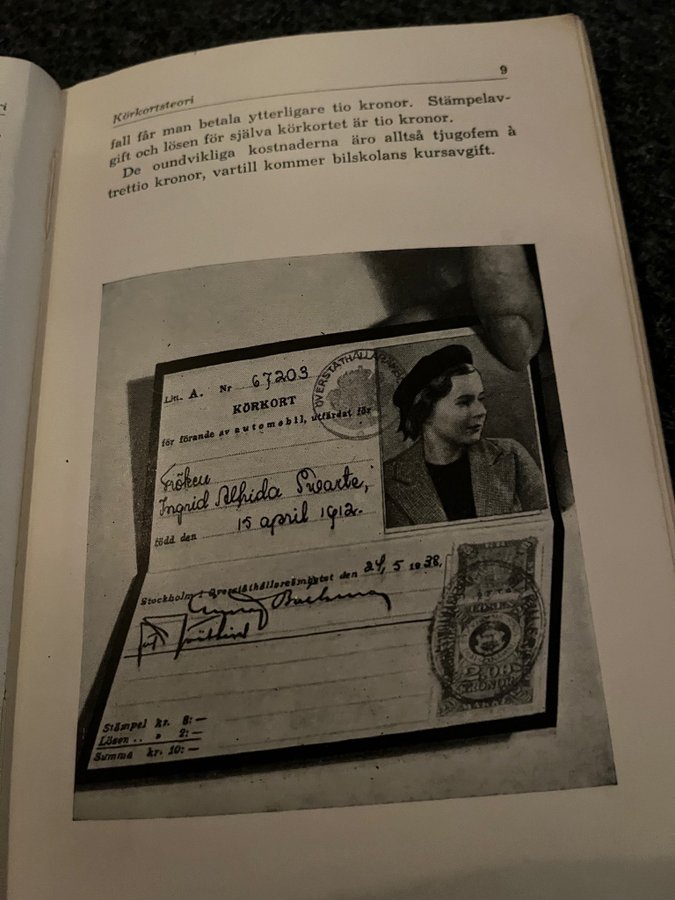 Körkortsteori
9
fall får man betala ytterligare tio kronor. Stämpelav-
gift och lösen för själva körkortet är tio kronor.
De oundvikliga kostnaderna äro alltså tjugofem à
trettio kronor, vartill kommer bilskolans kursavgift.
Litt. A. Nr 67203
KÖRKORT
för förande av automobil, utfärdat för
Fröken
Ingrid Alfrida Swarte,
född den 15 april 1912.
Stockholm i Överståthållareämbetet den 24, 5 1938.
Stämpel kr. 8:—
Lösen .. » 2:—
Summa kr. 10:—